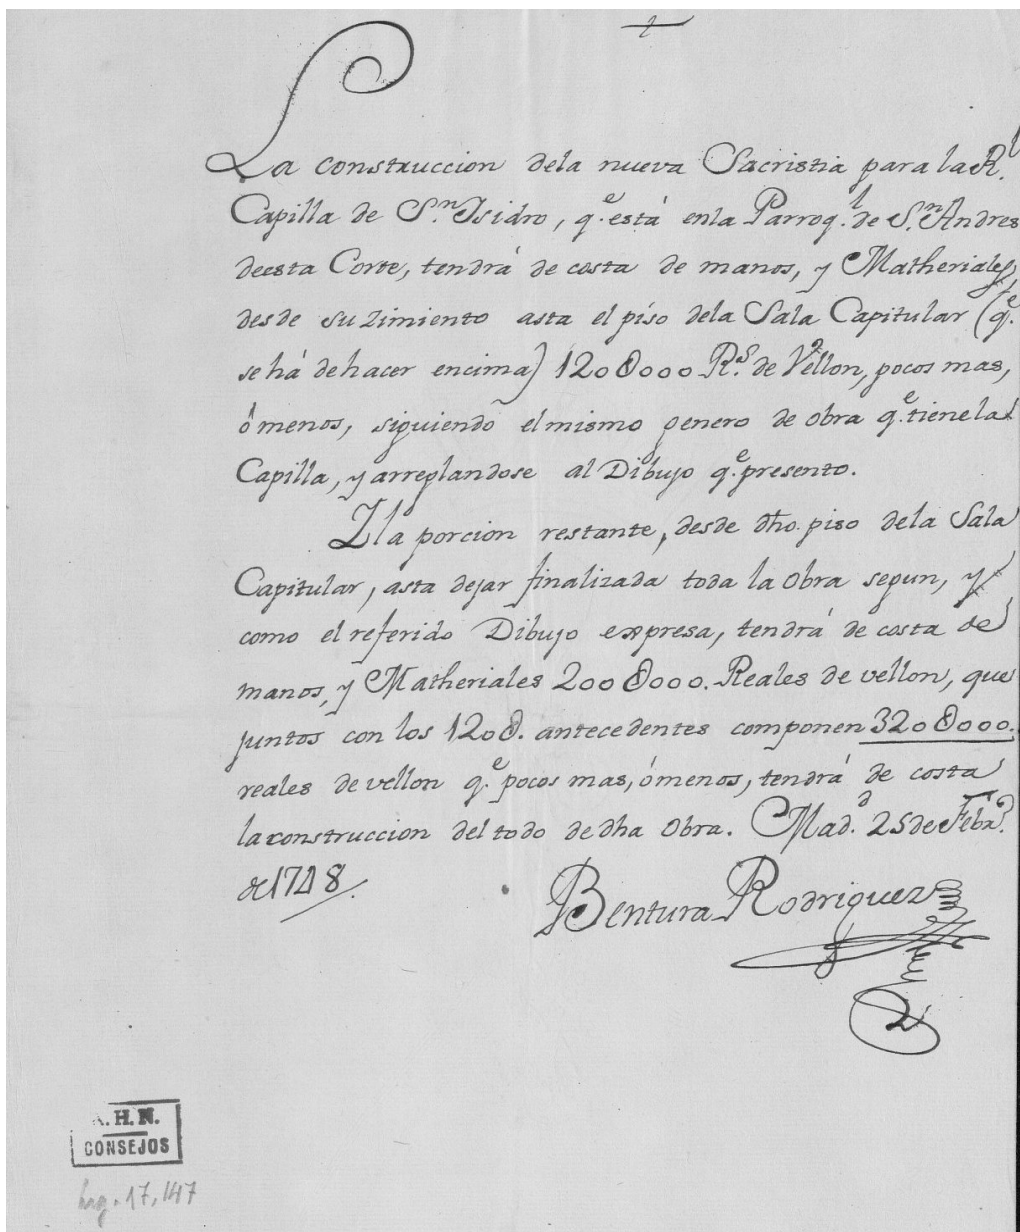 La construccion dela nueva Sacristia para la R.l
Capilla de S.n Isidro, q.e está enla Parroq.l de S.n Andres
deesta Corte, tendrá de costa de manos, y Matheriales,
desde su zimiento asta el piso dela Sala Capitular (q.e
se há de hacer encima) 120@000 R.s de Vellon, pocos mas,
ó menos, siguiendo el mismo genero de obra q.e tiene la
Capilla, y arreglandose al Dibujo q.e presento.
Y la porcion restante, desde dho. piso dela Sala
Capitular, asta dejar finalizada toda la Obra segun, y
como el referido Dibujo expresa, tendrá de costa de
manos, y Matheriales 200@000. Reales de vellon, que
juntos con los 120@. antecedentes componen 320@000.
reales de vellon q.e pocos mas, ó menos, tendrá de costa
la construccion del todo de dha Obra. Mad.d 25 de Febr.o
de 1748
Bentura Rodriguez
A. H. N.
CONSEJOS
leg. 17,147